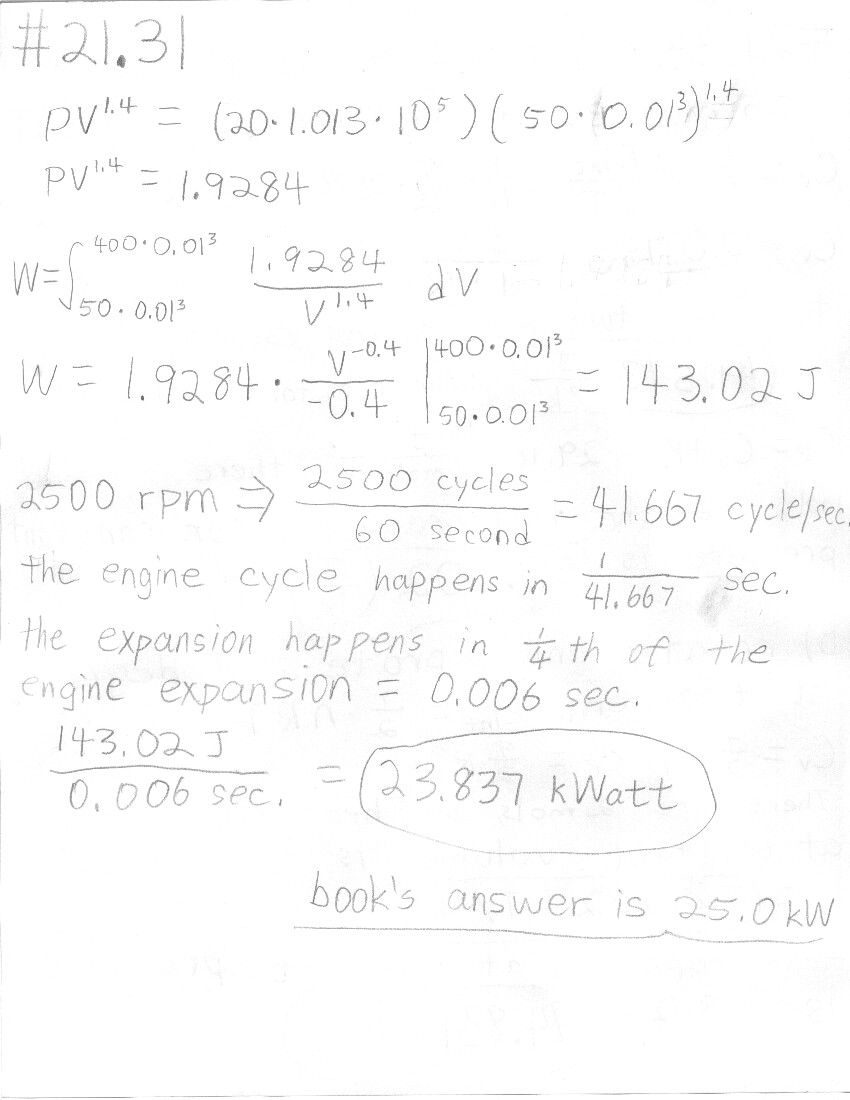 #21.31
PV^1.4 = (20·1.013·10^5)(50·0.01^3)^1.4
PV^1.4 = 1.9284
W=∫_{50·0.01^3}^{400·0.01^3} 1.9284/V^1.4 dV
W = 1.9284 · V^-0.4/-0.4 |_{50·0.01^3}^{400·0.01^3} = 143.02 J
2500 rpm ⇒ 2500 cycles/60 second = 41.667 cycle/sec.
the engine cycle happens in 1/41.667 sec.
the expansion happens in 1/4 th of the
engine expansion = 0.006 sec.
143.02 J/0.006 sec. = 23.837 kWatt
book's answer is 25.0 kW